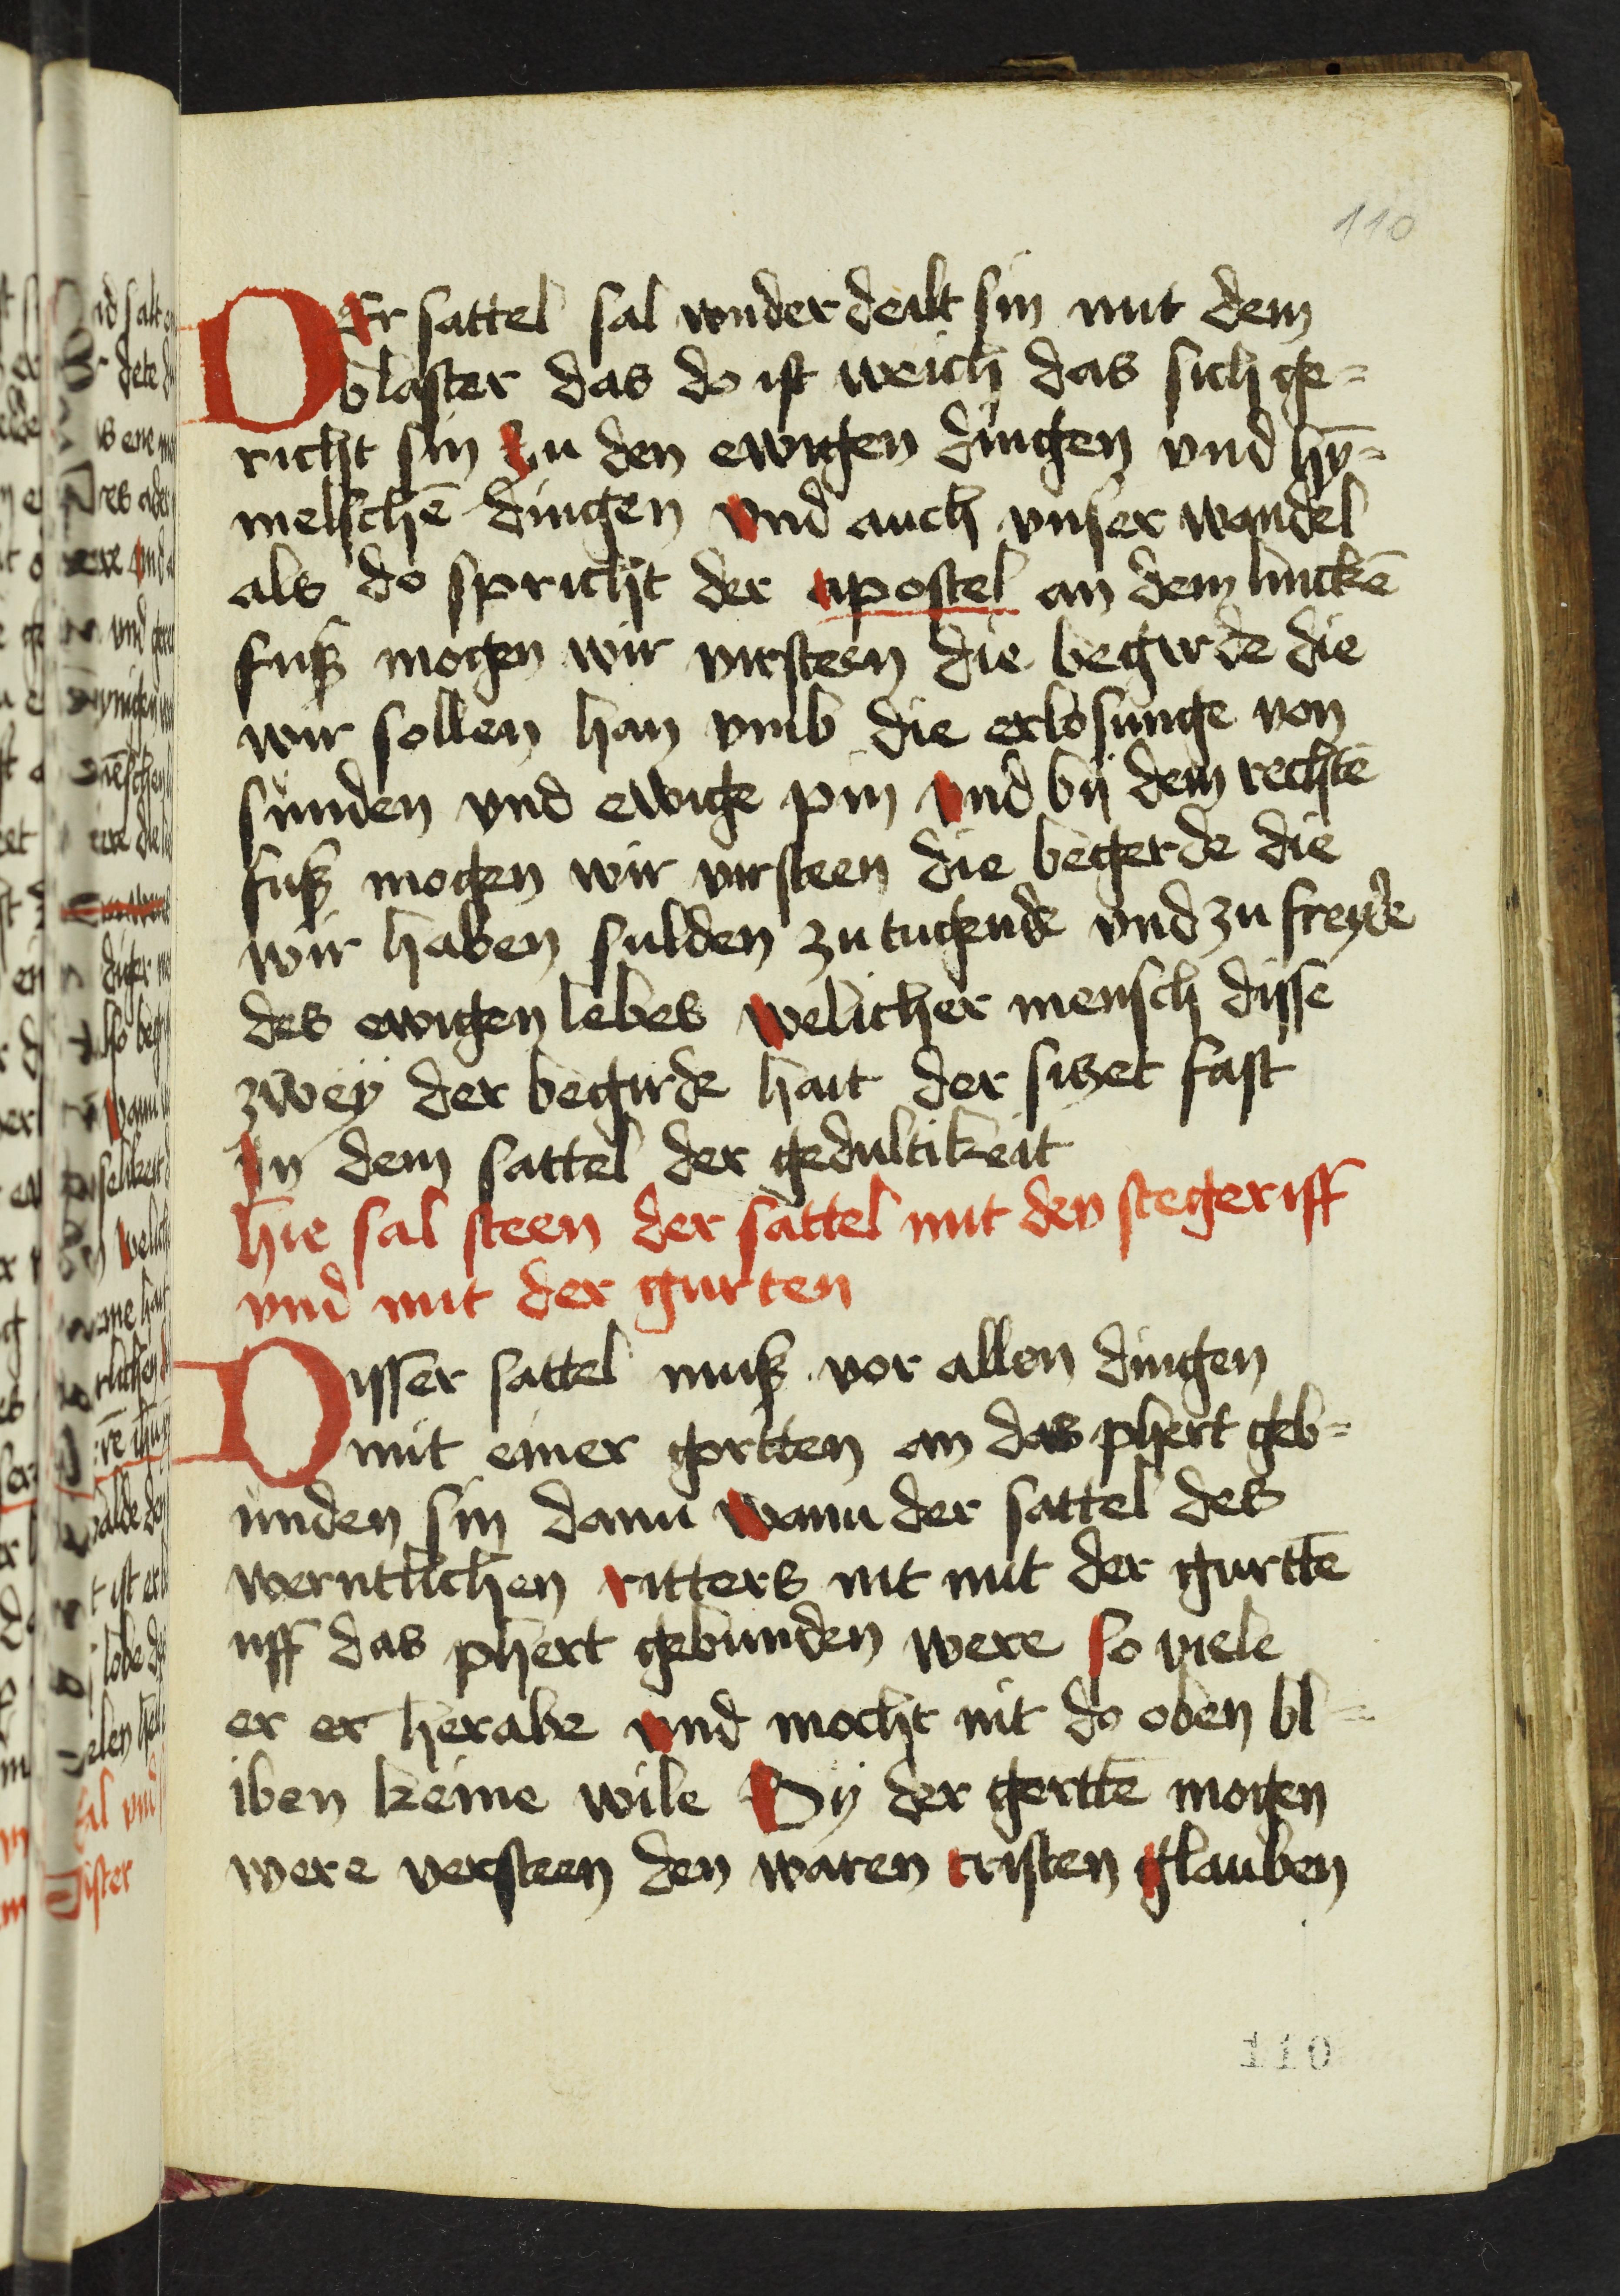 110
DEr sattel sal vnderdeilt sin mit dem
blaster das do ist weich das sich ge=
richt sin zu den ewigen dingen vnd hy̅=
melsche̅ dingen vnd auch vnser wandel
als do spricht der apostel an dem lincke̅
fuß mogen wir virsteen die begirde die
wir sollen han vmb die erlosunge von
sunden vnd ewige pin vnd bij dem rechte̅
fuß mogen wir virsteen die begerde die
wir haben sulden zu tugende vnd zu freyde
des ewigen lebes welicher mensch disse
zwey der begirde hait der sitzet fast
in dem sattel der gedultikeit
hie sal steen der sattel mit den stegeriff
vnd mit der gurten
Disser sattel muß vor allen dingen
mit einer gortten an das phert geb=
unden sin dann wann der sattel des
werntlichen ritters nit mit der gurtte̅
uff das phert gebunden were so viele
er er herabe vnd mocht nit do oben bl=
iben keine wile Bij der gertte̅ mogen
were versteen den waren cristen glauben
110